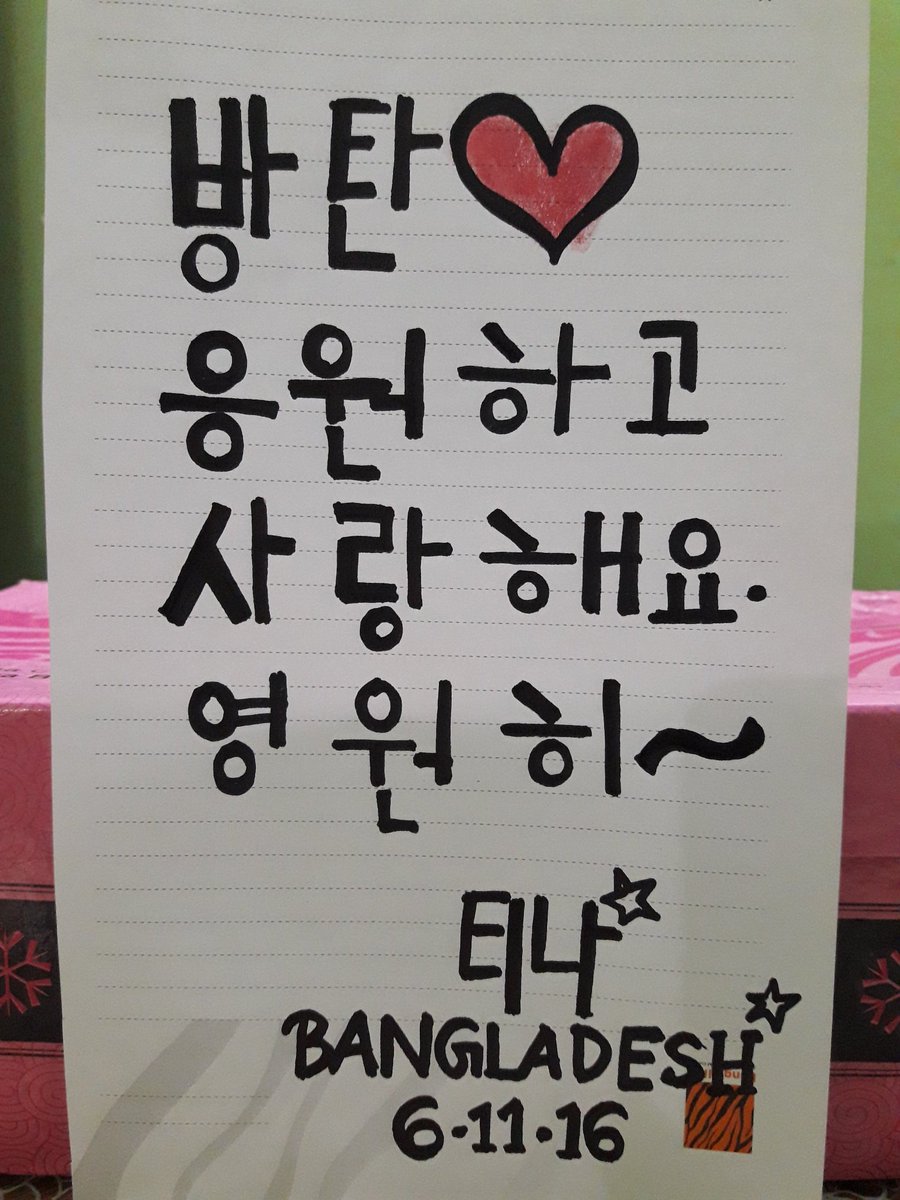 방탄♥
응원하고
사랑해요.
영원히~
티나☆
BANGLADESH☆
6·11·16